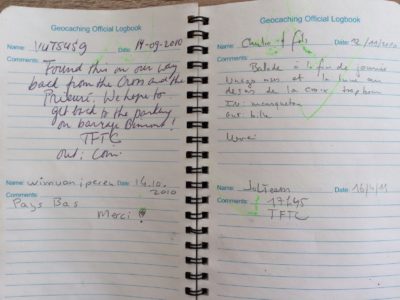 Geocaching Official Logbook
Name: VUT5459 Date: 14-09-2010
Comments:
Found this on our way
back from the Cross and the
Prieuré. We hope to
get back to the parking
on barrage Bimont!
TFTC
out: Coin
Name: Date: 14.10.
2010
Comments:
Pays Bas
Merci!
Geocaching Official Logbook
Name: Date:
Comments: Balade à la fin de journée
et la lune au
de la croix trop bon
In:
out: blu
Merci
Name: Date: 16/4/11
Comments: 17h45
TFTC